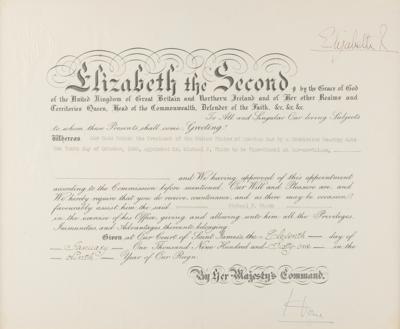 Elizabeth R
Elizabeth the Second, by the Grace of God
of the United Kingdom of Great Britain and Northern Ireland and of Her other Realms and
Territories Queen, Head of the Commonwealth, Defender of the Faith, &c. &c. &c.
To All and Singular Our loving Subjects
to whom these Presents shall come, Greeting!
Whereas Our Good Friend the President of the United States of America has by a Commission bearing date
the Tenth day of October, 1960, appointed Mr. Richard F. to be Vice-Consul at
and We having approved of this appointment
according to the Commission before mentioned. Our Will and Pleasure are, and
We hereby require that you do receive, countenance, and as there may be occasion,
favourably assist him the said Richard F.
in the exercise of his Office, giving and allowing unto him all the Privileges,
Immunities, and Advantages thereunto belonging.
Given at Our Court of Saint James's, the Eleventh day of
January One Thousand Nine Hundred and Sixty-one in the
Ninth Year of Our Reign.
By Her Majesty's Command.
Home